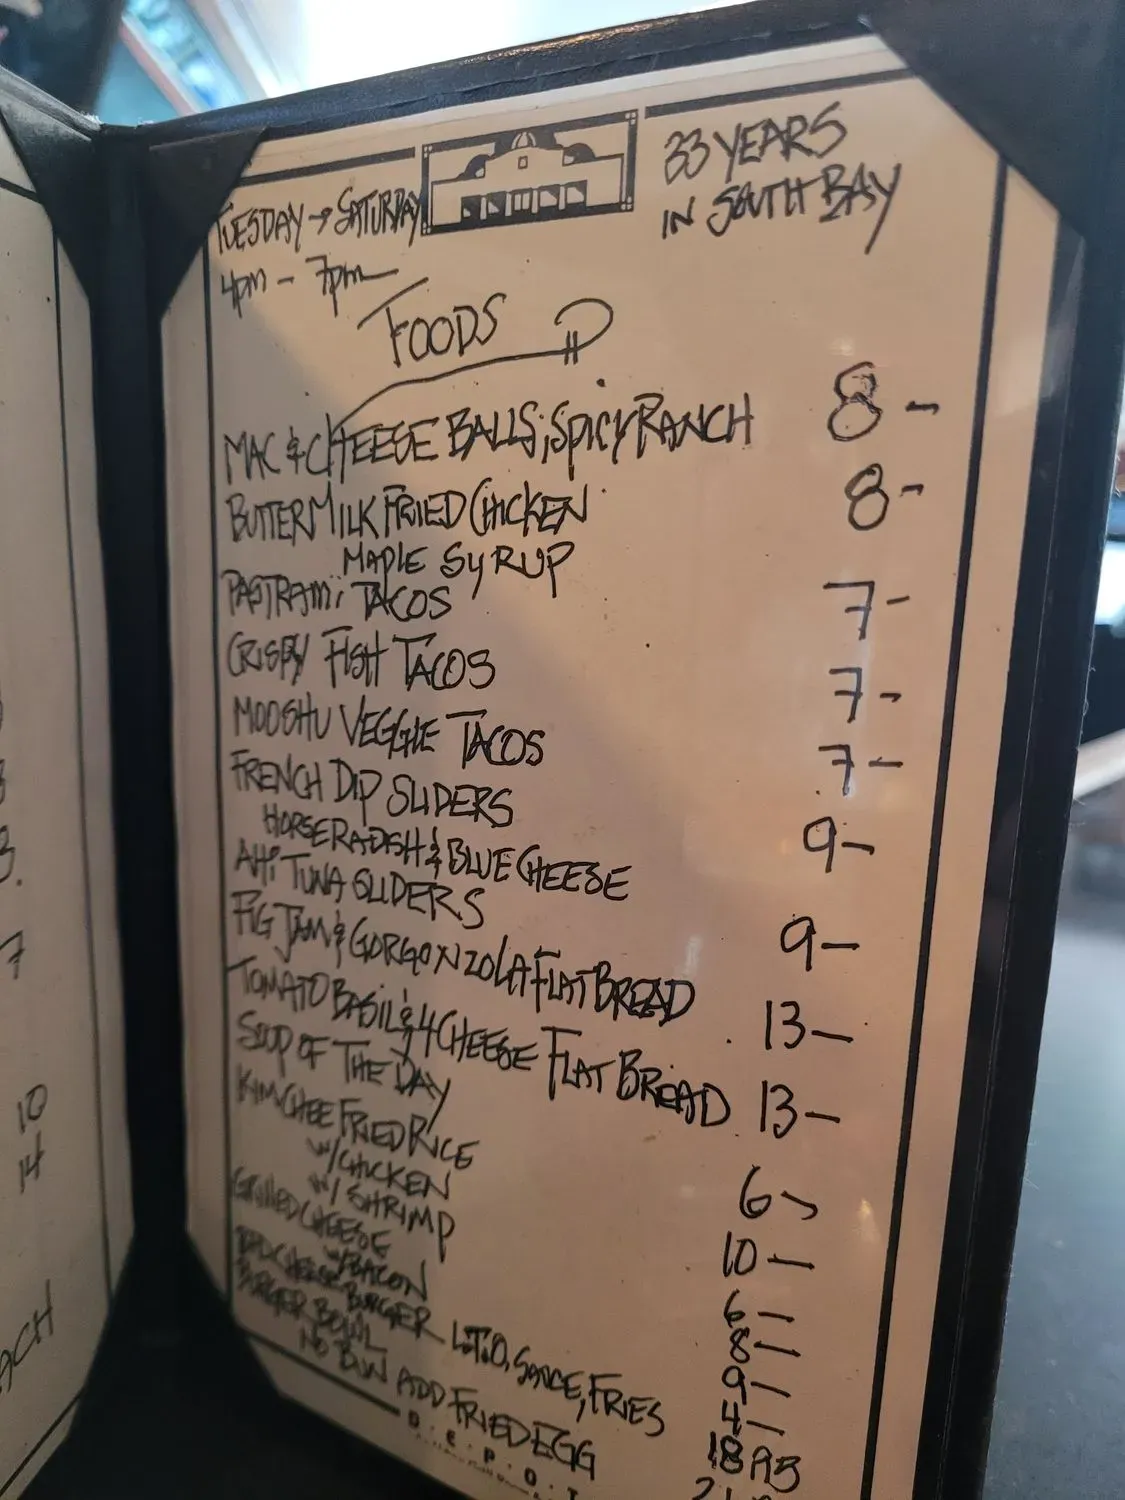 TUESDAY → SATURDAY
4pm - 7pm
33 YEARS
IN SOUTH BAY
FOODS
MAC & CHEESE BALLS; SPICY RANCH 8-
BUTTERMILK FRIED CHICKEN 8-
MAPLE SYRUP
PASTRAMi TACOS 7-
CRISPY FISH TACOS 7-
MOOSHU VEGGIE TACOS 7-
FRENCH DIP SLIDERS 9-
HORSERADISH & BLUE CHEESE
AHi TUNA SLIDERS 9-
FIG JAM & GORGONZOLA FLATBREAD 13-
TOMATO BASIL & 4 CHEESE FLAT BREAD 13-
SOUP OF THE DAY 6-
KIMCHEE FRIED RICE 10-
W/ CHICKEN 6-
W/ SHRIMP 8-
GRILLED CHEESE 9-
W/ BACON 4-
CHEESE BURGER L.T.O, SAUCE, FRIES 18.95
BURGER BOWL
NO BUN ADD FRIED EGG
D·E·P·O·T
10
14
7